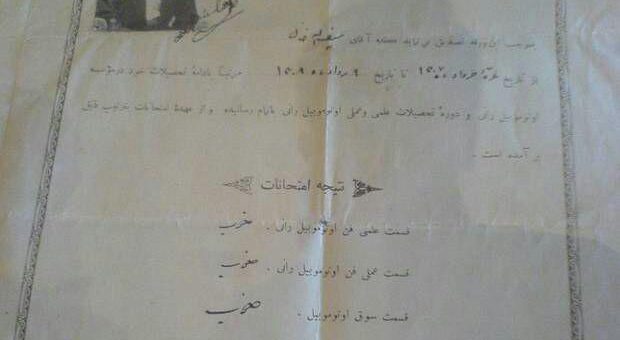 بموجب این ورقه تصدیق می نماید معتمد آقای
از تاریخ خرداد تا تاریخ مرتباً بادامهٔ تحصیلات خود در مؤسسه
اوتوموبیل رانی و دورهٔ تحصیلات علمی و عملی اوتوموبیل رانی باتمام رسانیده و از عهدهٔ امتحانات بترتیب ذیل
بر آمده است .
نتیجه امتحانات
قسمت علمی فن اوتوموبیل رانی . خوب
قسمت عملی فن اوتوموبیل رانی . خوب
قسمت سوق اوتوموبیل . خوب